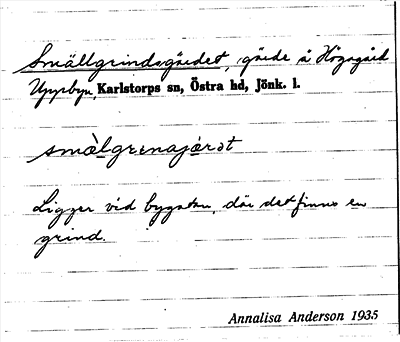 Smällgrindsgärdet, gärde å Högagärd
Uppbyn, Karlstorps sn, Östra hd, Jönk. l.
smàlgrenajærət
Ligger vid bygatan, där det finns en
grind.
Annalisa Anderson 1935